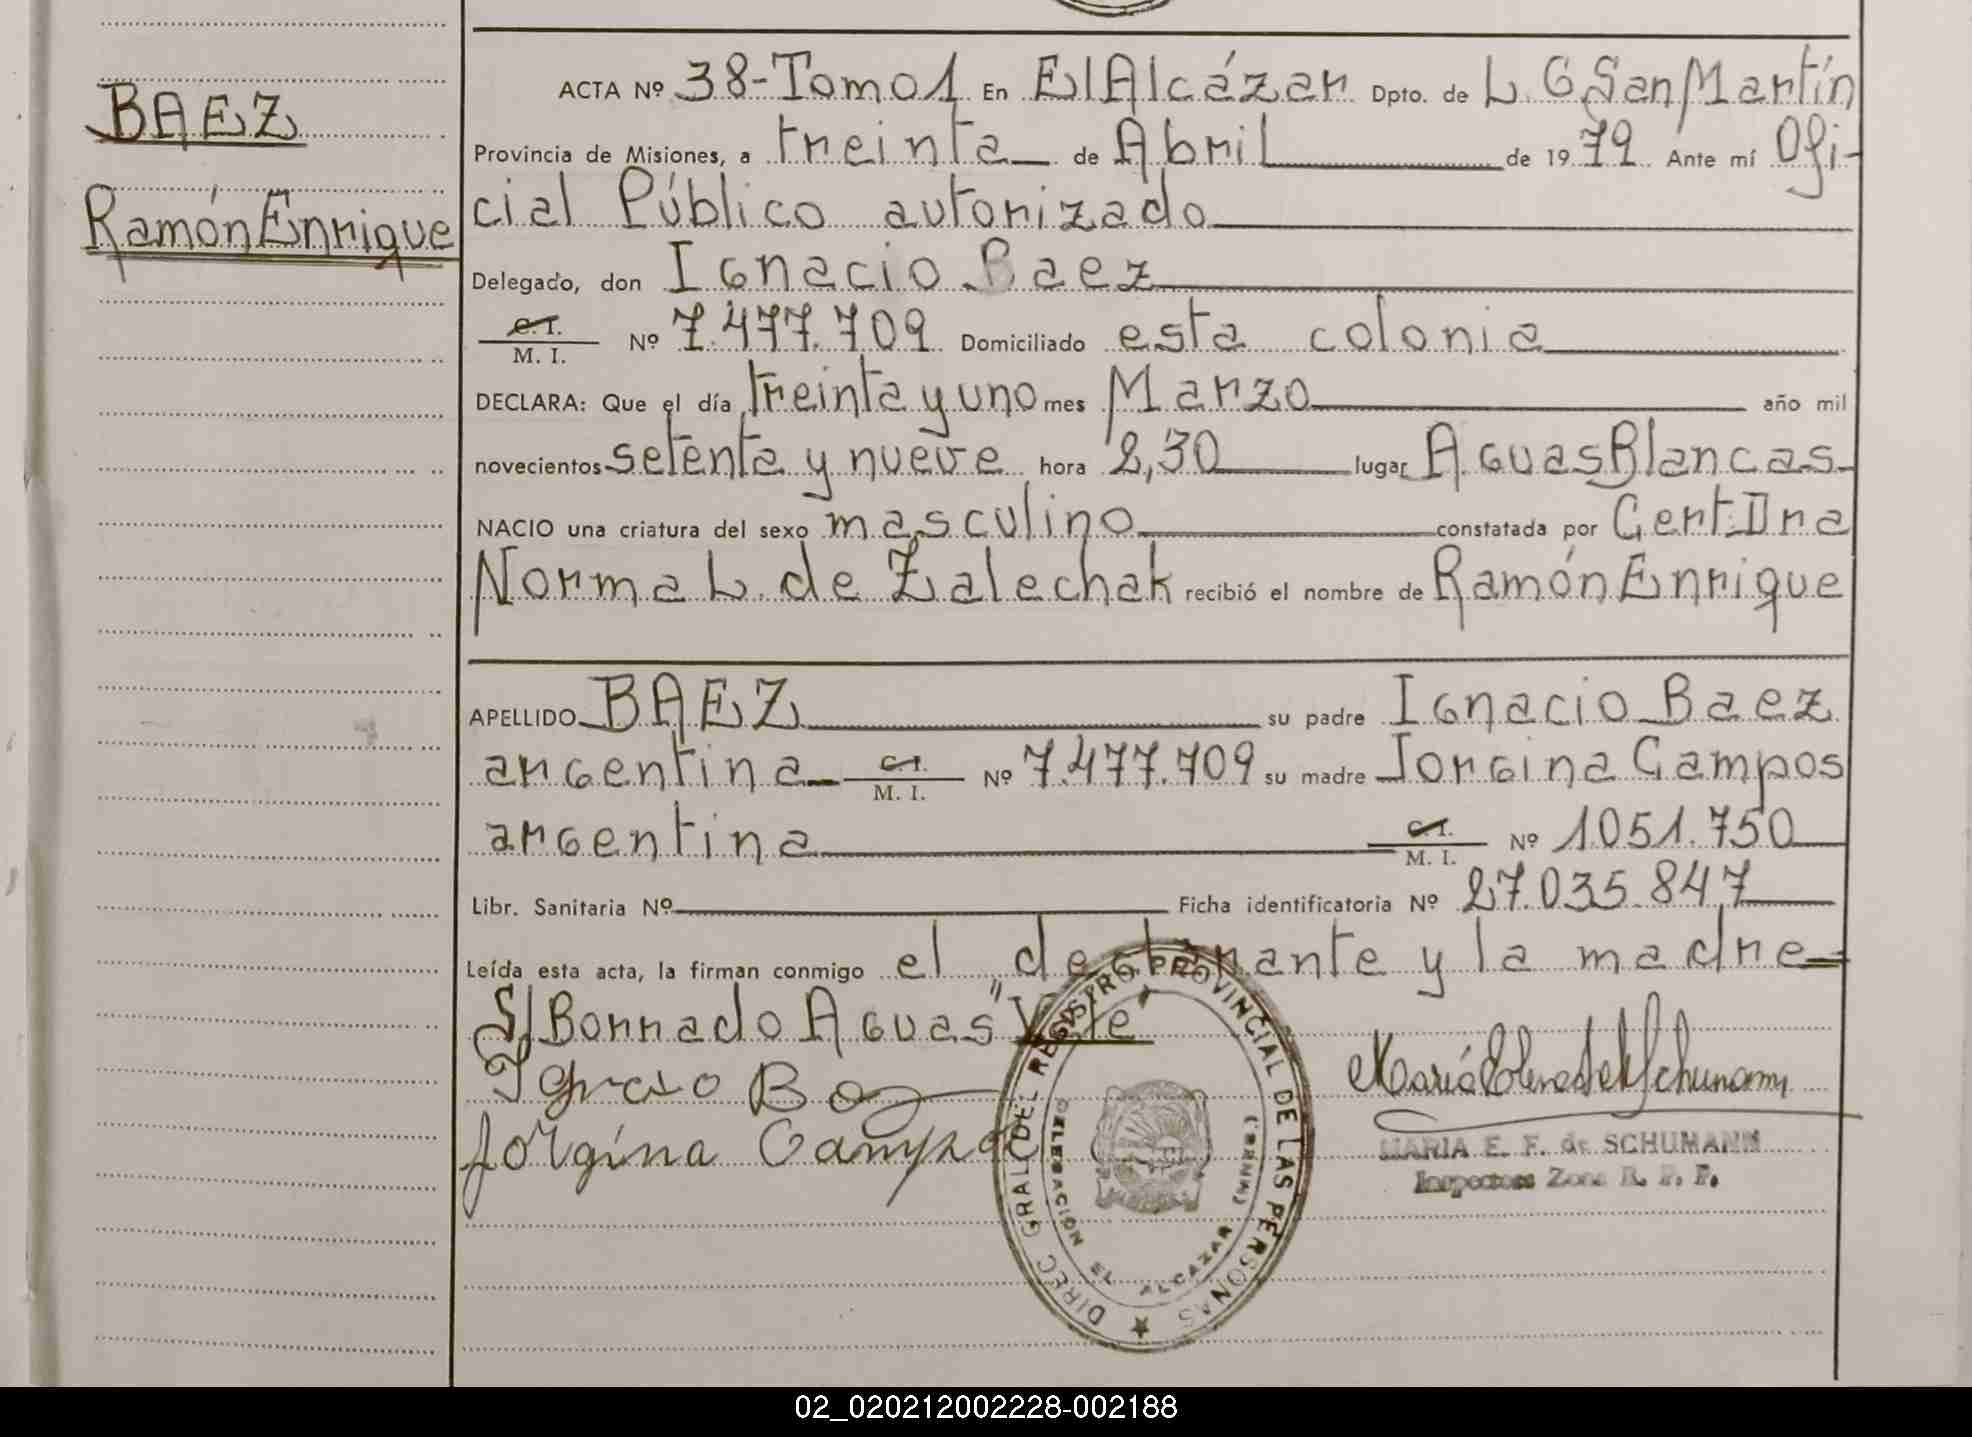 BAEZ
Ramón Enrique
ACTA Nº 38-Tomo 1 En El Alcázar Dpto. de L. G San Martín
Provincia de Misiones, a treinta de Abril de 19 79 Ante mí Ofi-
cial Público autorizado
Delegado, don Ignacio Baez
C.I.
M. I. Nº 7.477.709 Domiciliado esta colonia
DECLARA: Que el día treinta y uno mes Marzo año mil
novecientos setenta y nueve hora 2,30 lugar Aguas Blancas
NACIO una criatura del sexo masculino constatada por Cert. Dra
Norma L. de Zalechak recibió el nombre de Ramón Enrique
APELLIDO BAEZ su padre Ignacio Baez
argentina C.I. M. I. Nº 7.477.709 su madre Jorgina Campos
argentina C.I. M. I. Nº 1051.750
Libr. Sanitaria Nº Ficha identificatoria Nº 27.035.847
Leída esta acta, la firman conmigo el declarante y la madre
S/Borrado Aguas "Vale"
Ignacio Baez
Jorgina Campos
María Elena de Schumann
MARIA E. F. de SCHUMANN
Inspectora Zona R. P. P.
DIREC GRAL DEL REGISTRO PROVINCIAL DE LAS PERSONAS
DELEGACION EL ALCAZAR
02_020212002228-002188